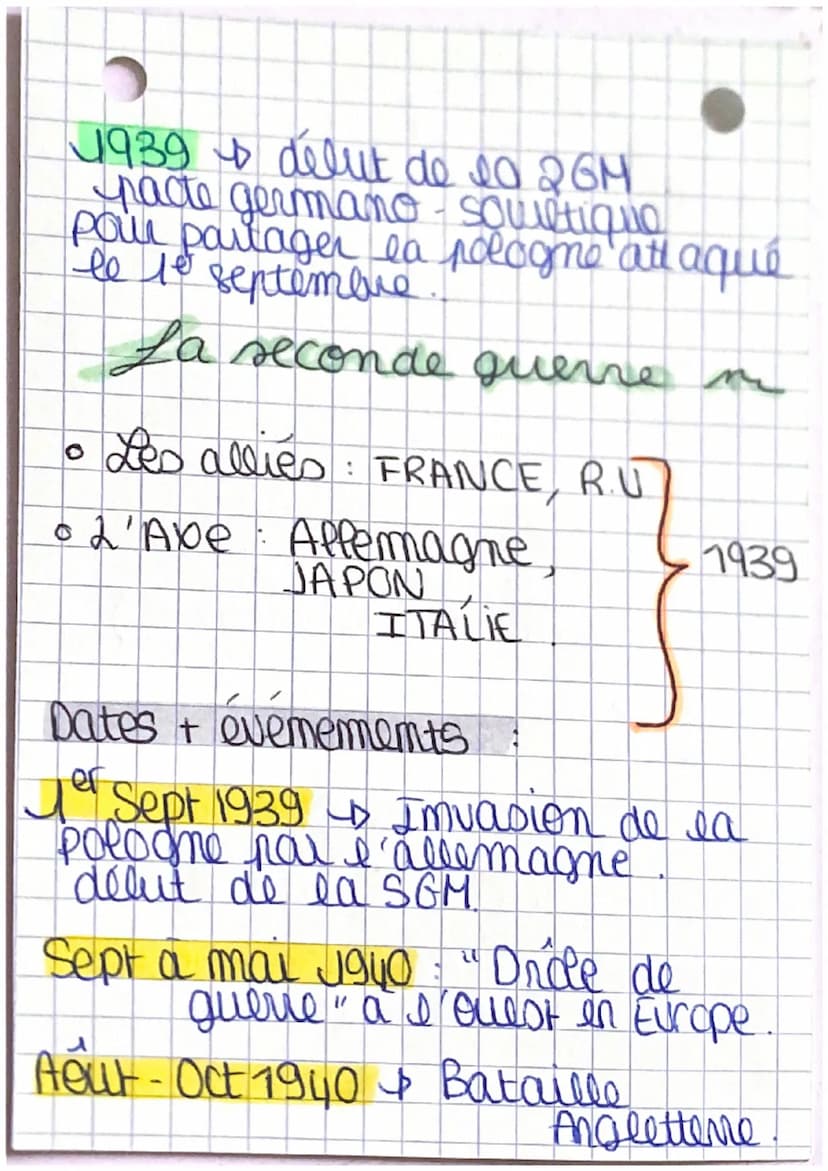 1939 → début de la 2GM
pacte germano-soviétique
pour partager la pologne attaqué
le 1er septembre.
La seconde guerre m
• Les alliés : FRANCE, R.U
• L'Axe : Allemagne,
JAPON
ITALIE.
1939
Dates + événements :
1er Sept 1939 → Invasion de la
pologne par l'allemagne.
début de la SGM.
Sept à mai 1940 : "Drôle de
guerre" à l'ouest en Europe.
Août - Oct 1940 → Bataille
Angleterre.